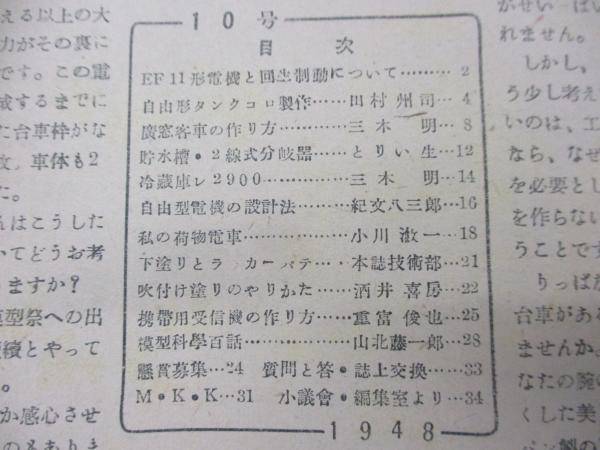 える以上の大
力がその裏に
です。この電
成するまでに
こ台車枠がな
数、車体も2
た。
れはこうした
いてどうお考
ますか?
模型祭への出
績とやって
。
か感心させ
10号
目次
EF11形電機と回生制動について………2
自由形タンクコロ製作……田村州司…4
廣窓客車の作り方………三木　明…8
貯水槽・2線式分岐器……とりい生…12
冷蔵庫レ2900……………三木　明…14
自由型電機の設計法………紀文八三郎…16
私の荷物電車………………小川　一…18
下塗りとラッカーパテ…・本誌技術部…21
吹付け塗りのやりかた……酒井喜房…22
携帶用受信機の作り方……重富俊也…25
模型科學百話………………山北藤一郎…28
懸賞募集…24　質問と答・誌上交換……33
M・K・K…31　小議會・編集室より…34
1948
がせい一ぱい
れません。
しかし、
う少し考え
いのは、工
なら、なぜ
を必要とし
を作らない
うことです
りっぱな
台車がある
ませんか。
なたの腕の
くした美